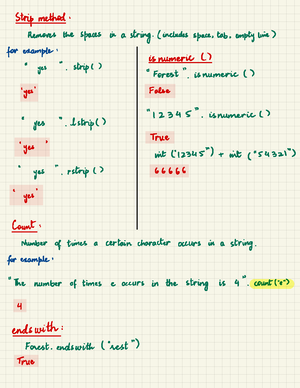 Strip method:
Removes the spaces in a string. (includes space, tab, empty line)
for example:
" yes ". strip()
'yes'
" yes ". lstrip()
'yes '
" yes ". rstrip()
' yes'
isnumeric ()
"Forest". isnumeric ()
False
"12345". isnumeric ()
True
int ("12345") + int ("54321")
66666
Count:
Number of times a certain character occurs in a string.
for example:
"The number of times e occurs in the string is 4". count("e")
4
endswith:
Forest. endswith ("rest")
True